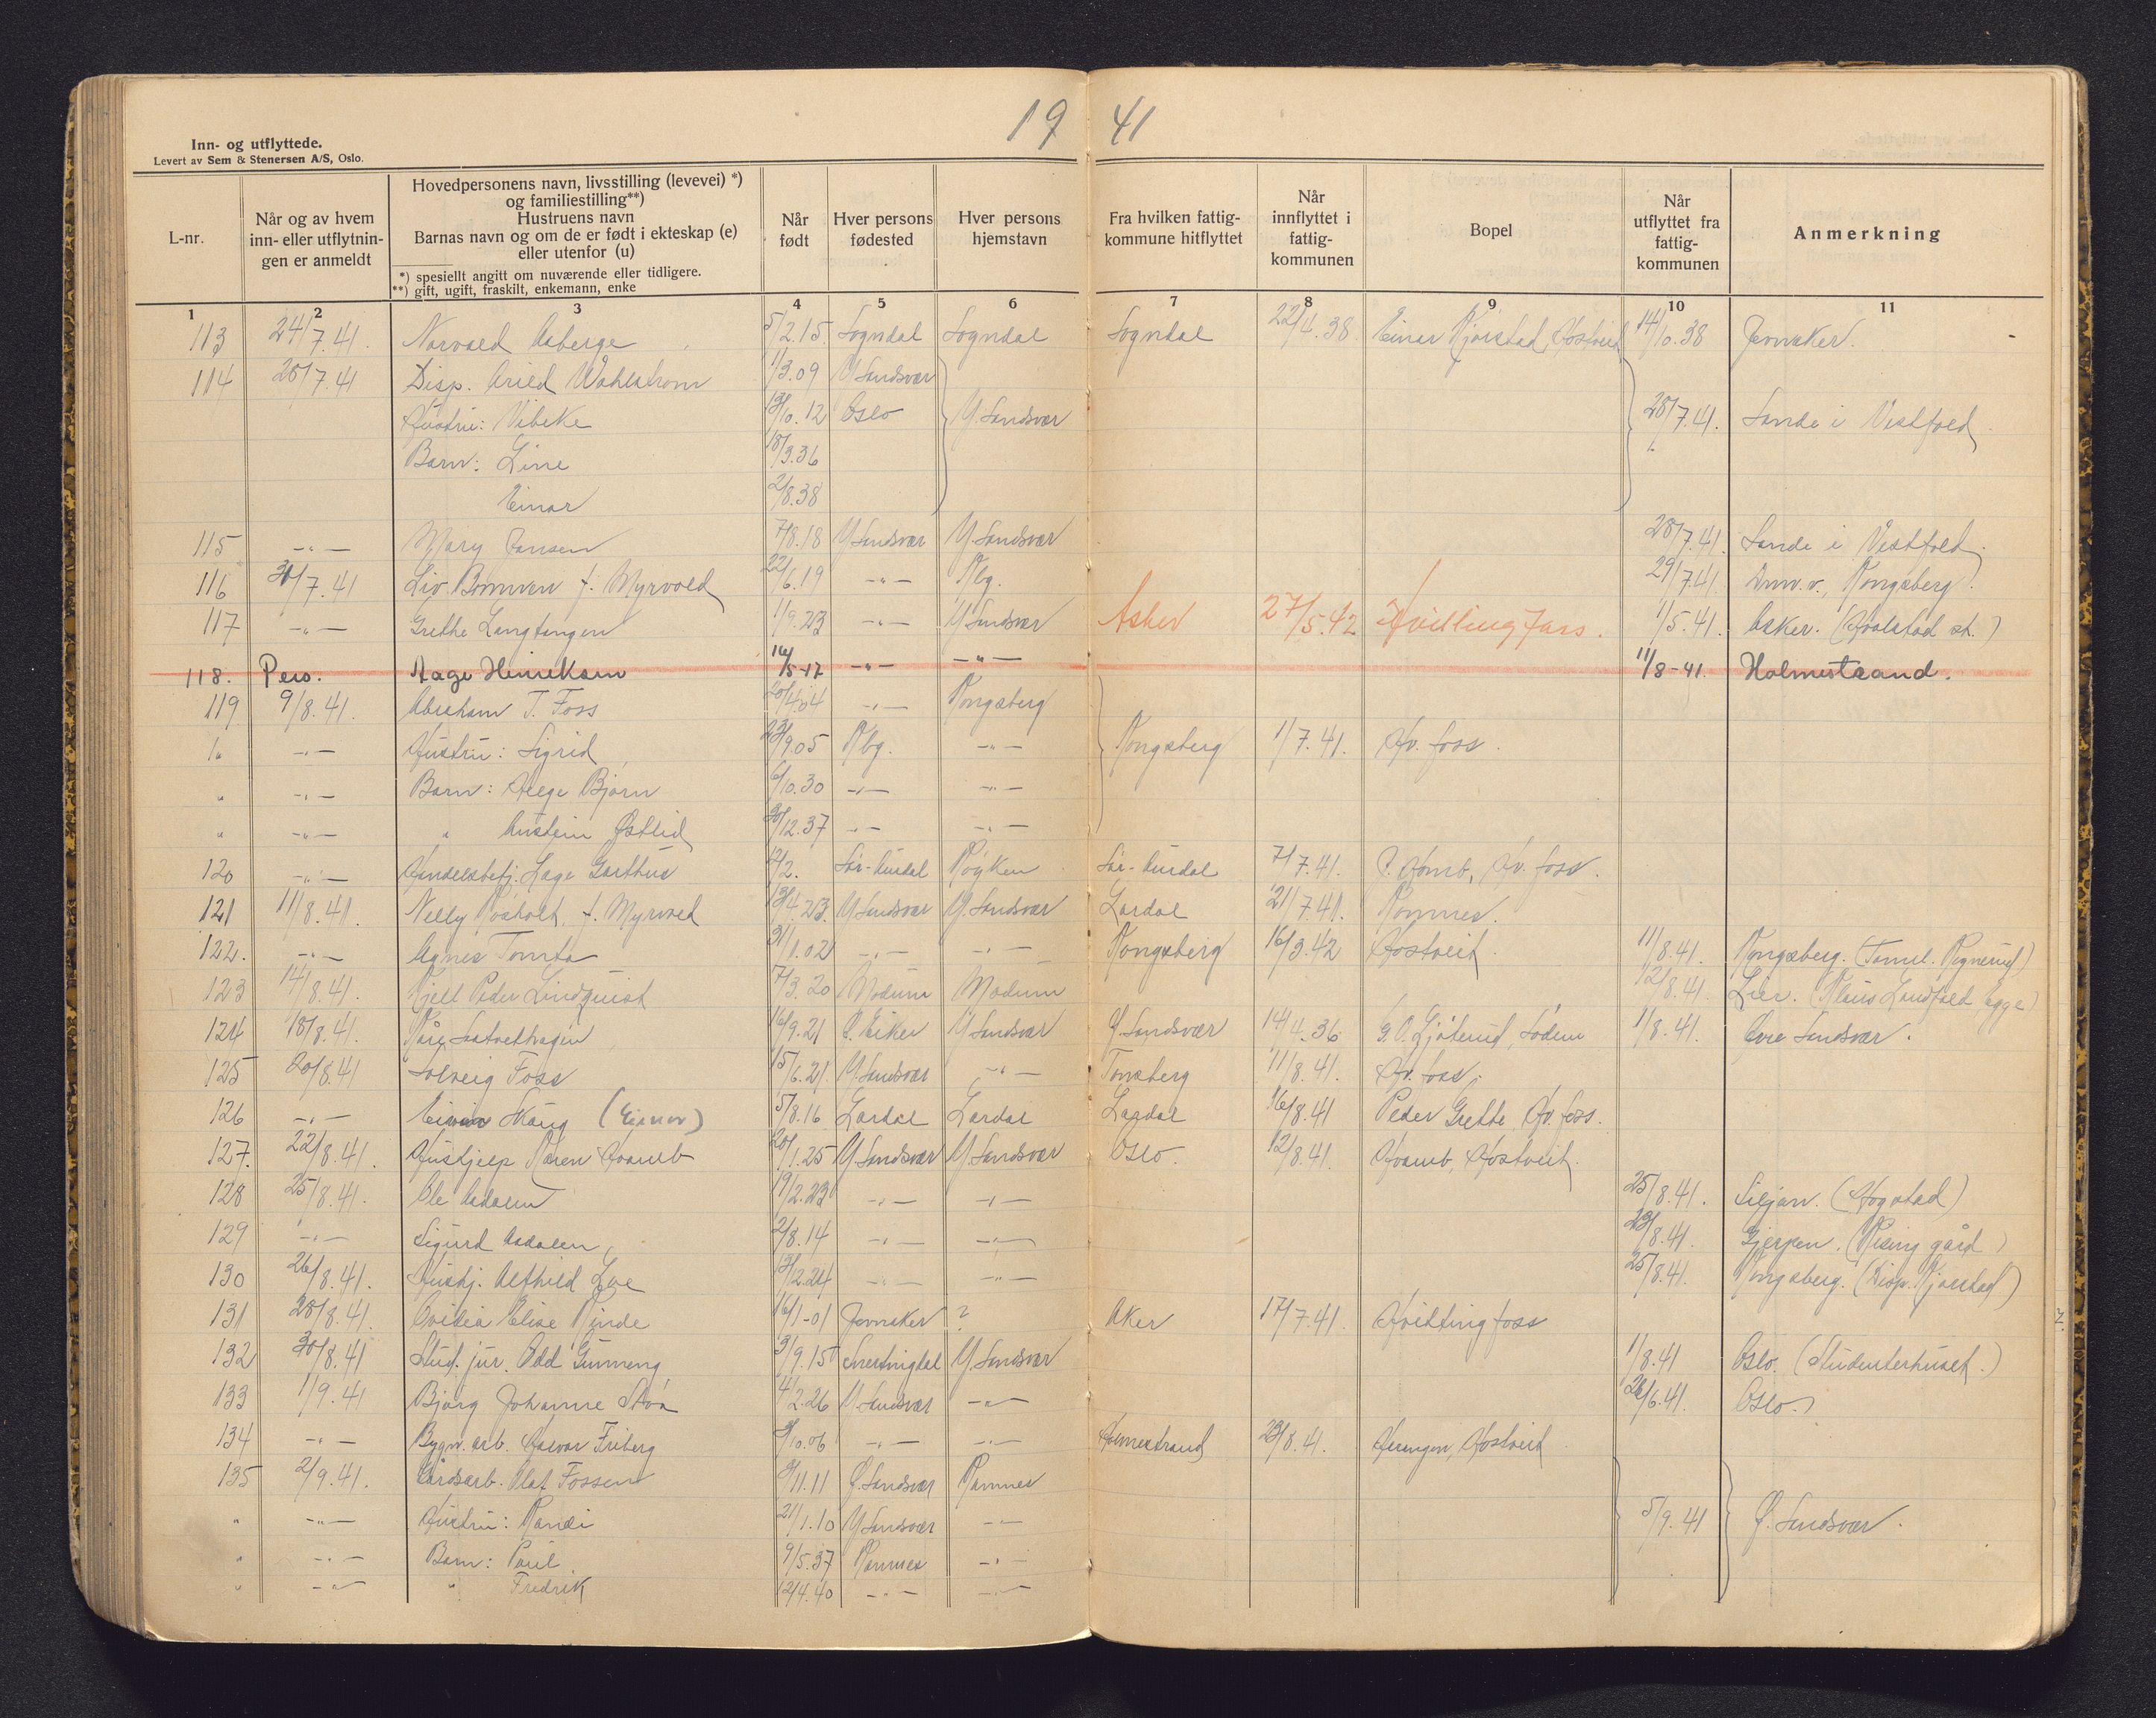 19 41
Inn- og utflyttede.
Levert av Sem & Stenersen A/S, Oslo.
L-nr.
Når og av hvem inn- eller utflytnin-gen er anmeldt
Hovedpersonens navn, livsstilling (levevei) *) og familiestilling**)
Hustruens navn
Barnas navn og om de er født i ekteskap (e) eller utenfor (u)
*) spesielt angitt om nuværende eller tidligere.
**) gift, ugift, fraskilt, enkemann, enke
Når født
Hver persons fødested
Hver persons hjemstavn
Fra hvilken fattig-kommune hitflyttet
Når innflyttet i fattig-kommunen
Bopel
Når utflyttet fra fattig-kommunen
Anmerkning
1 2 3 4 5 6 7 8 9 10 11
113 24/7.41. Norvald Aaberge 5/2.15. Sogndal Sogndal Sogndal 22/4.38 Einar Kjørstad, Hostveit 14/10.38 Jevnaker.
114 28/7.41 Disp. Arild Wahlstrøm 1/3.09 Y. Sandsvær
Hustru: Vibeke 13/10.12 Oslo Y. Sandsvær 28/7.41. Sande i Vestfold.
Barn: Line 18/3.36
Einar 2/8.38
115 -"- Mary Jansen 7/8.18 Y. Sandsvær Y. Sandsvær 28/7.41. Sande i Vestfold.
116 31/7.41 Liv f. Myrvold 22/6.19 -"- Kbg. 29/7.41 Kongsberg.
117 -"- Grethe Langtangen 1/9.23 -"- Y. Sandsvær Asker 27/5.42 Hvittingfoss. 1/5.41. Asker. (Hvalstad st.)
118. Pers. Aage Henriksen 14/5-17 -"- -"- 11/8-41. Holmestrand.
119 9/8.41. Abraham T. Foss 20/4.04 -"- Kongsberg
1" -"- Hustru: Sigrid 23/9.05 Kbg. -"- Kongsberg 1/7.41. Hv. foss.
" -"- Barn: Helge Bjørn 6/10.30 -"- -"-
" -"- " Austein Østlid 30/12.37 -"- -"-
120 -"- Handelsbetj. Lage Garthus 12/2. Sør-Aurdal Røyken Sør-Aurdal 7/7.41. Hv. foss.
121 11/8.41. Nelly f. Myrvold 13/4.23. Y. Sandsvær Y. Sandsvær Lardal 21/7.41.
122. -"- Agnes Tomta 31/1.02 -"- -"- Kongsberg 16/3.42 Hostveit. 11/8.41. Kongsberg.
123 14/8.41. Kjell Peder Lindquist 17/3.20 Modum Modum 12/8.41. Lier.
124 18/8.41. Kåre 16/9.21 Ø. Eiker Y. Sandsvær Ø. Sandsvær 14/4.36 11/8.41. Øvre Sandsvær.
125 20/8.41 Solveig Foss 15/6.21. Y. Sandsvær -"- Tønsberg 11/8.41. Hv. foss.
126 -"- (Einar) 5/8.16 Lardal Lardal Lardal 16/8.41 Peder Grette, Hv. foss.
127. 22/8.41. Hushjelp Karen Hvamb 20/1.25 Y. Sandsvær Y. Sandsvær Oslo. 12/8.41. Hvamb, Hostveit.
128 25/8.41. Ole Aadalen 19/2.23 -"- -"- 25/8.41. Siljan. (Høgstad)
129 -"- Sigurd Aadalen, 2/8.14 -"- -"- 23/8.41. Gjerpen. (Rising gård)
130 26/8.41. Hushj. Alfhild Loe 13/2.24 -"- -"- 25/8.41. Kongsberg. (Disp. Kjørstad)
131 28/8.41. Ovidia Elise Rinde 16/1-01 Jevnaker ? Aker 17/7.41. Hvittingfoss
132 30/8.41 Stud. jur. Odd Gunneng 3/9.15 Snertingdal Y. Sandsvær 1/8.41 Oslo. (Studenterhuset.)
133 1/9.41 Bjørg Johanne 4/2.26 Y. Sandsvær -"- 26/6.41. Oslo.
134 -"- Bygn. arb. Hasvar Friberg 3/10.06 -"- -"- Holmestrand 23/8.41. Hostveit
135 2/9.41. Gårdsarb. Olaf Fossen 3/11.11 Ø. Sandsvær Ramnes
" -"- Hustru: Randi 21/1.10 Y. Sandsvær -"- 5/9.41 Ø. Sandsvær.
" -"- Barn: Paul 9/5.37 Ramnes -"-
" -"- " Fredrik 12/4.40 -"- -"-